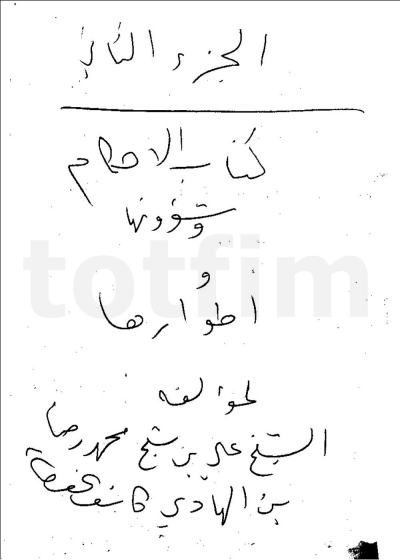 الجزء الثاني
كتاب الاحكام
وشؤونها
و
اطوارها
لمؤلفه
الشيخ علي بن شيخ محمد رضا
بن الهادي كاشف الغطاء
totfim